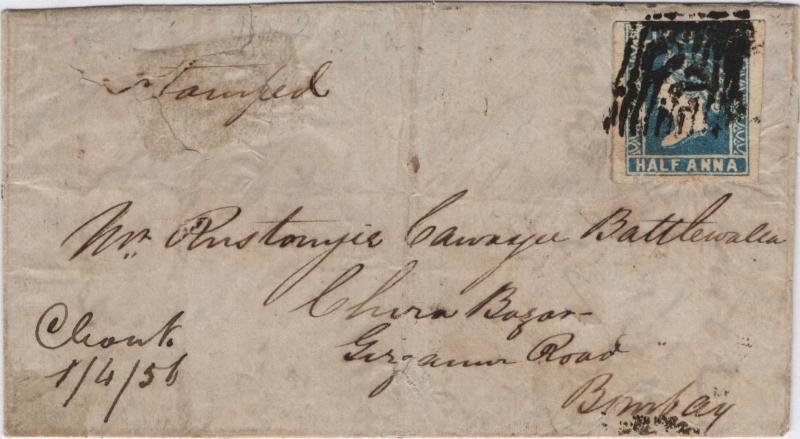 Stamped
HALF ANNA
Mr Rustomjee Cawasjee Battlewalla
Chira Bazar
Girgaum Road
Bombay
Chowk
1/4/56